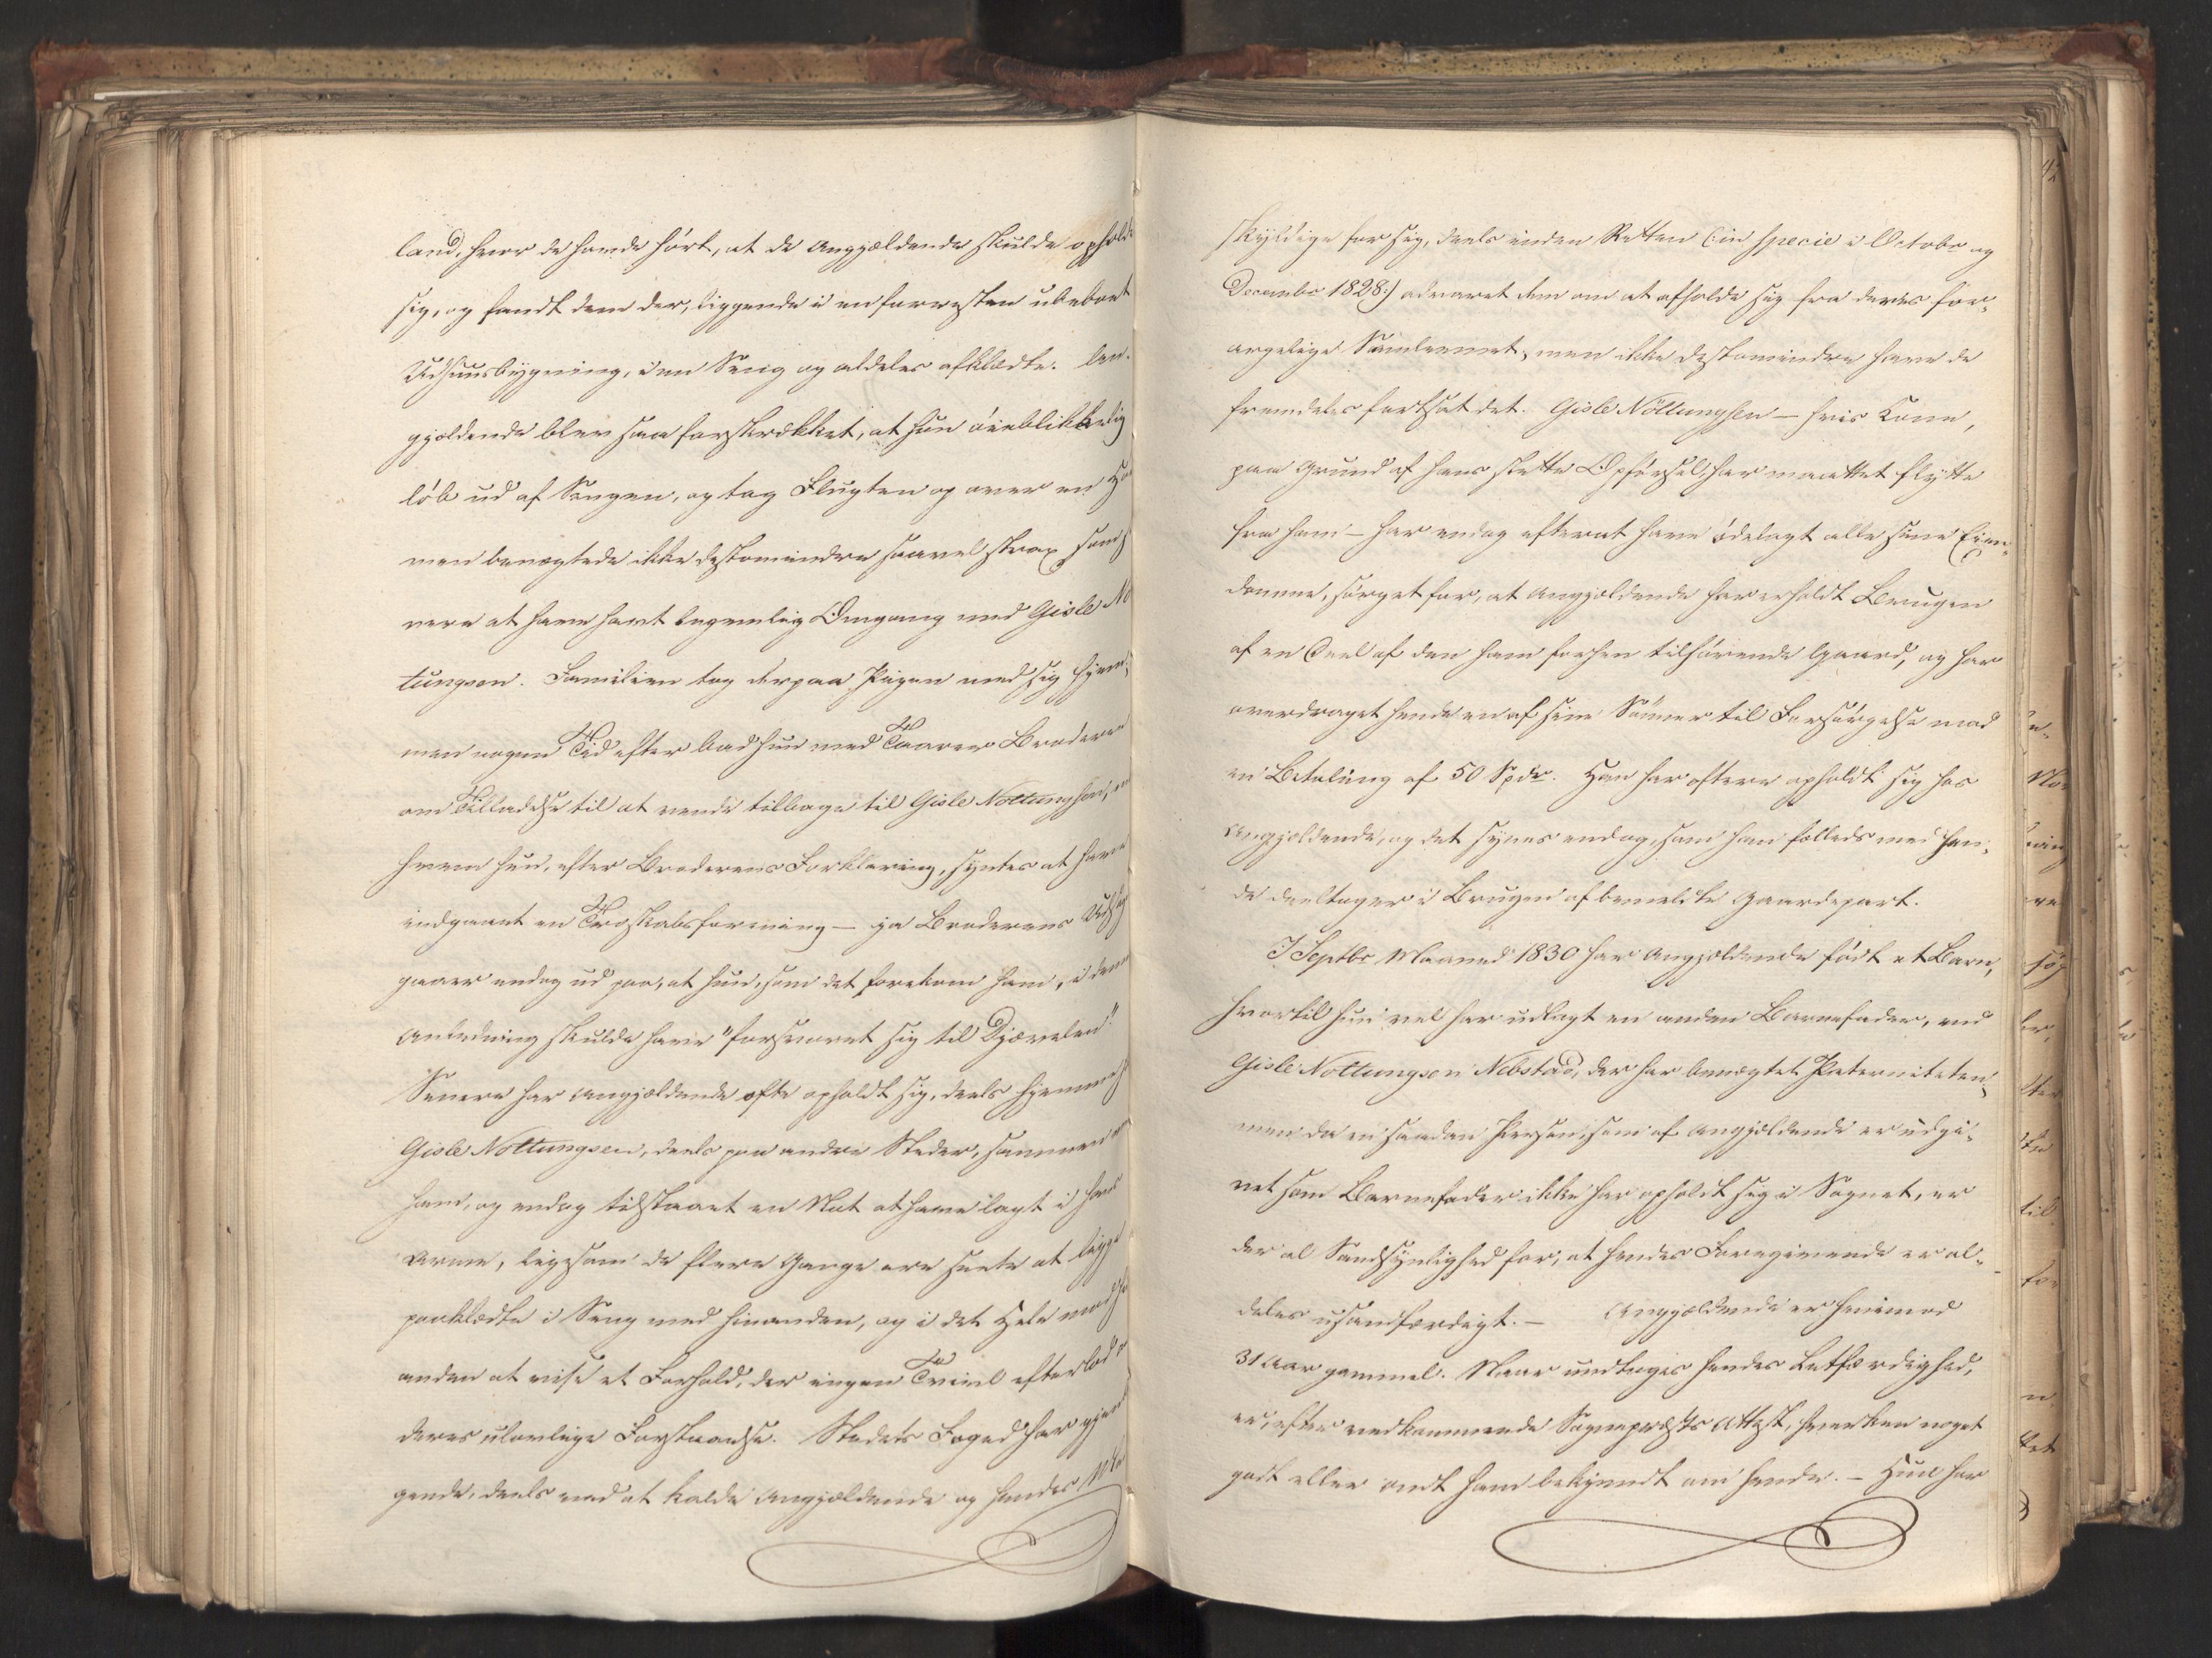 land, hvor de havde hört, at de Angjældende skulde ophold
sig, og fandt dem der, liggende i en forresten ubeboet
Udhuusbygning, i en Seng og aldeles afklædte. An-
gjældende blev saa forskrækket, at hun öieblikkelig
löb ud af Sengen, og tog Flugten op over en
men benægtede ikke destomindre saavel strax som s
nere at have havt legemlig Omgang med Gisle No
tungsen. Familien tog derpaa Pigen med sig hjem;
men nogen Tid efter bad hun med Taarer Broderen
om Tilladelse til at vende tilbage til Gisle Nottungsen,
hvem hun, efter Broderens Forklaring, syntes at have
indgaaet en Troskabsforening – ja Broderens Uds
gaaer endog ud paa, at hun, som det forekom ham, i den
Anledning skulde have "forsvoret sig til Djævelen".
Senere har Angjældende ofte opholdt sig, deels hjemme
Gisle Nottungsen, deels paa andre Steder, sammen
ham, og endog tilstaaet en Nat at have lagt i hans
Arme, ligesom de flere Gange ere seete at ligge
paaklædte i Seng med hinanden, og i det Hele mod
anden at vise et Forhold, der ingen Tvivl efterlod
deres ulovlige Forstaaelse. Stedets Foged har gjen
gende, deels ved at kalde Angjældende og hendes Med
skyldige for sig, deels inden Retten (: in specie i Octobr og
Decembr 1828 :) advaret dem om at afholde sig fra deres for-
argelige Samlevnet, men ikke destomindre have de
fremdeles fortsat det. Gisle Nöttungsen – hvis Kone,
paa Grund af hans slette Opförsel, har maattet flytte
fra ham – har endog efterat have ödelagt alle sine Eien-
domme, sörget for, at Angjældende har erholdt Brugen
af en Deel af den ham forhen tilhörende Gaard, og har
overdraget hende en af sine Sönner til Forsörgelse mod
en Betaling af 50 Spdr. Han har oftere opholdt sig hos
Angjældende, og det synes endog, som han fælleds med hen-
de deeltager i Brugen af bemeldte Gaardepart.
I Septbr Maaned 1830 har Angjældende födt et Barn,
hvortil hun vel har udlagt en anden Barnefader, end
Gisle Nottungsen Nebstad, der har benægtet Paterniteten;
men da en saadan Person, som af Angjældende er udgi-
vet som Barnefader ikke har opholdt sig i Sognet, er
der al Sandsynlighed for, at hendes Foregivende er al-
deles usandfærdigt. – Angjældende er henimod
31 Aar gammel. Naar undtages hendes Letfærdighed,
er, efter vedkommende Sognepræsts Attest, hverken noget
godt eller ondt ham bekjendt om hende. – Hun har